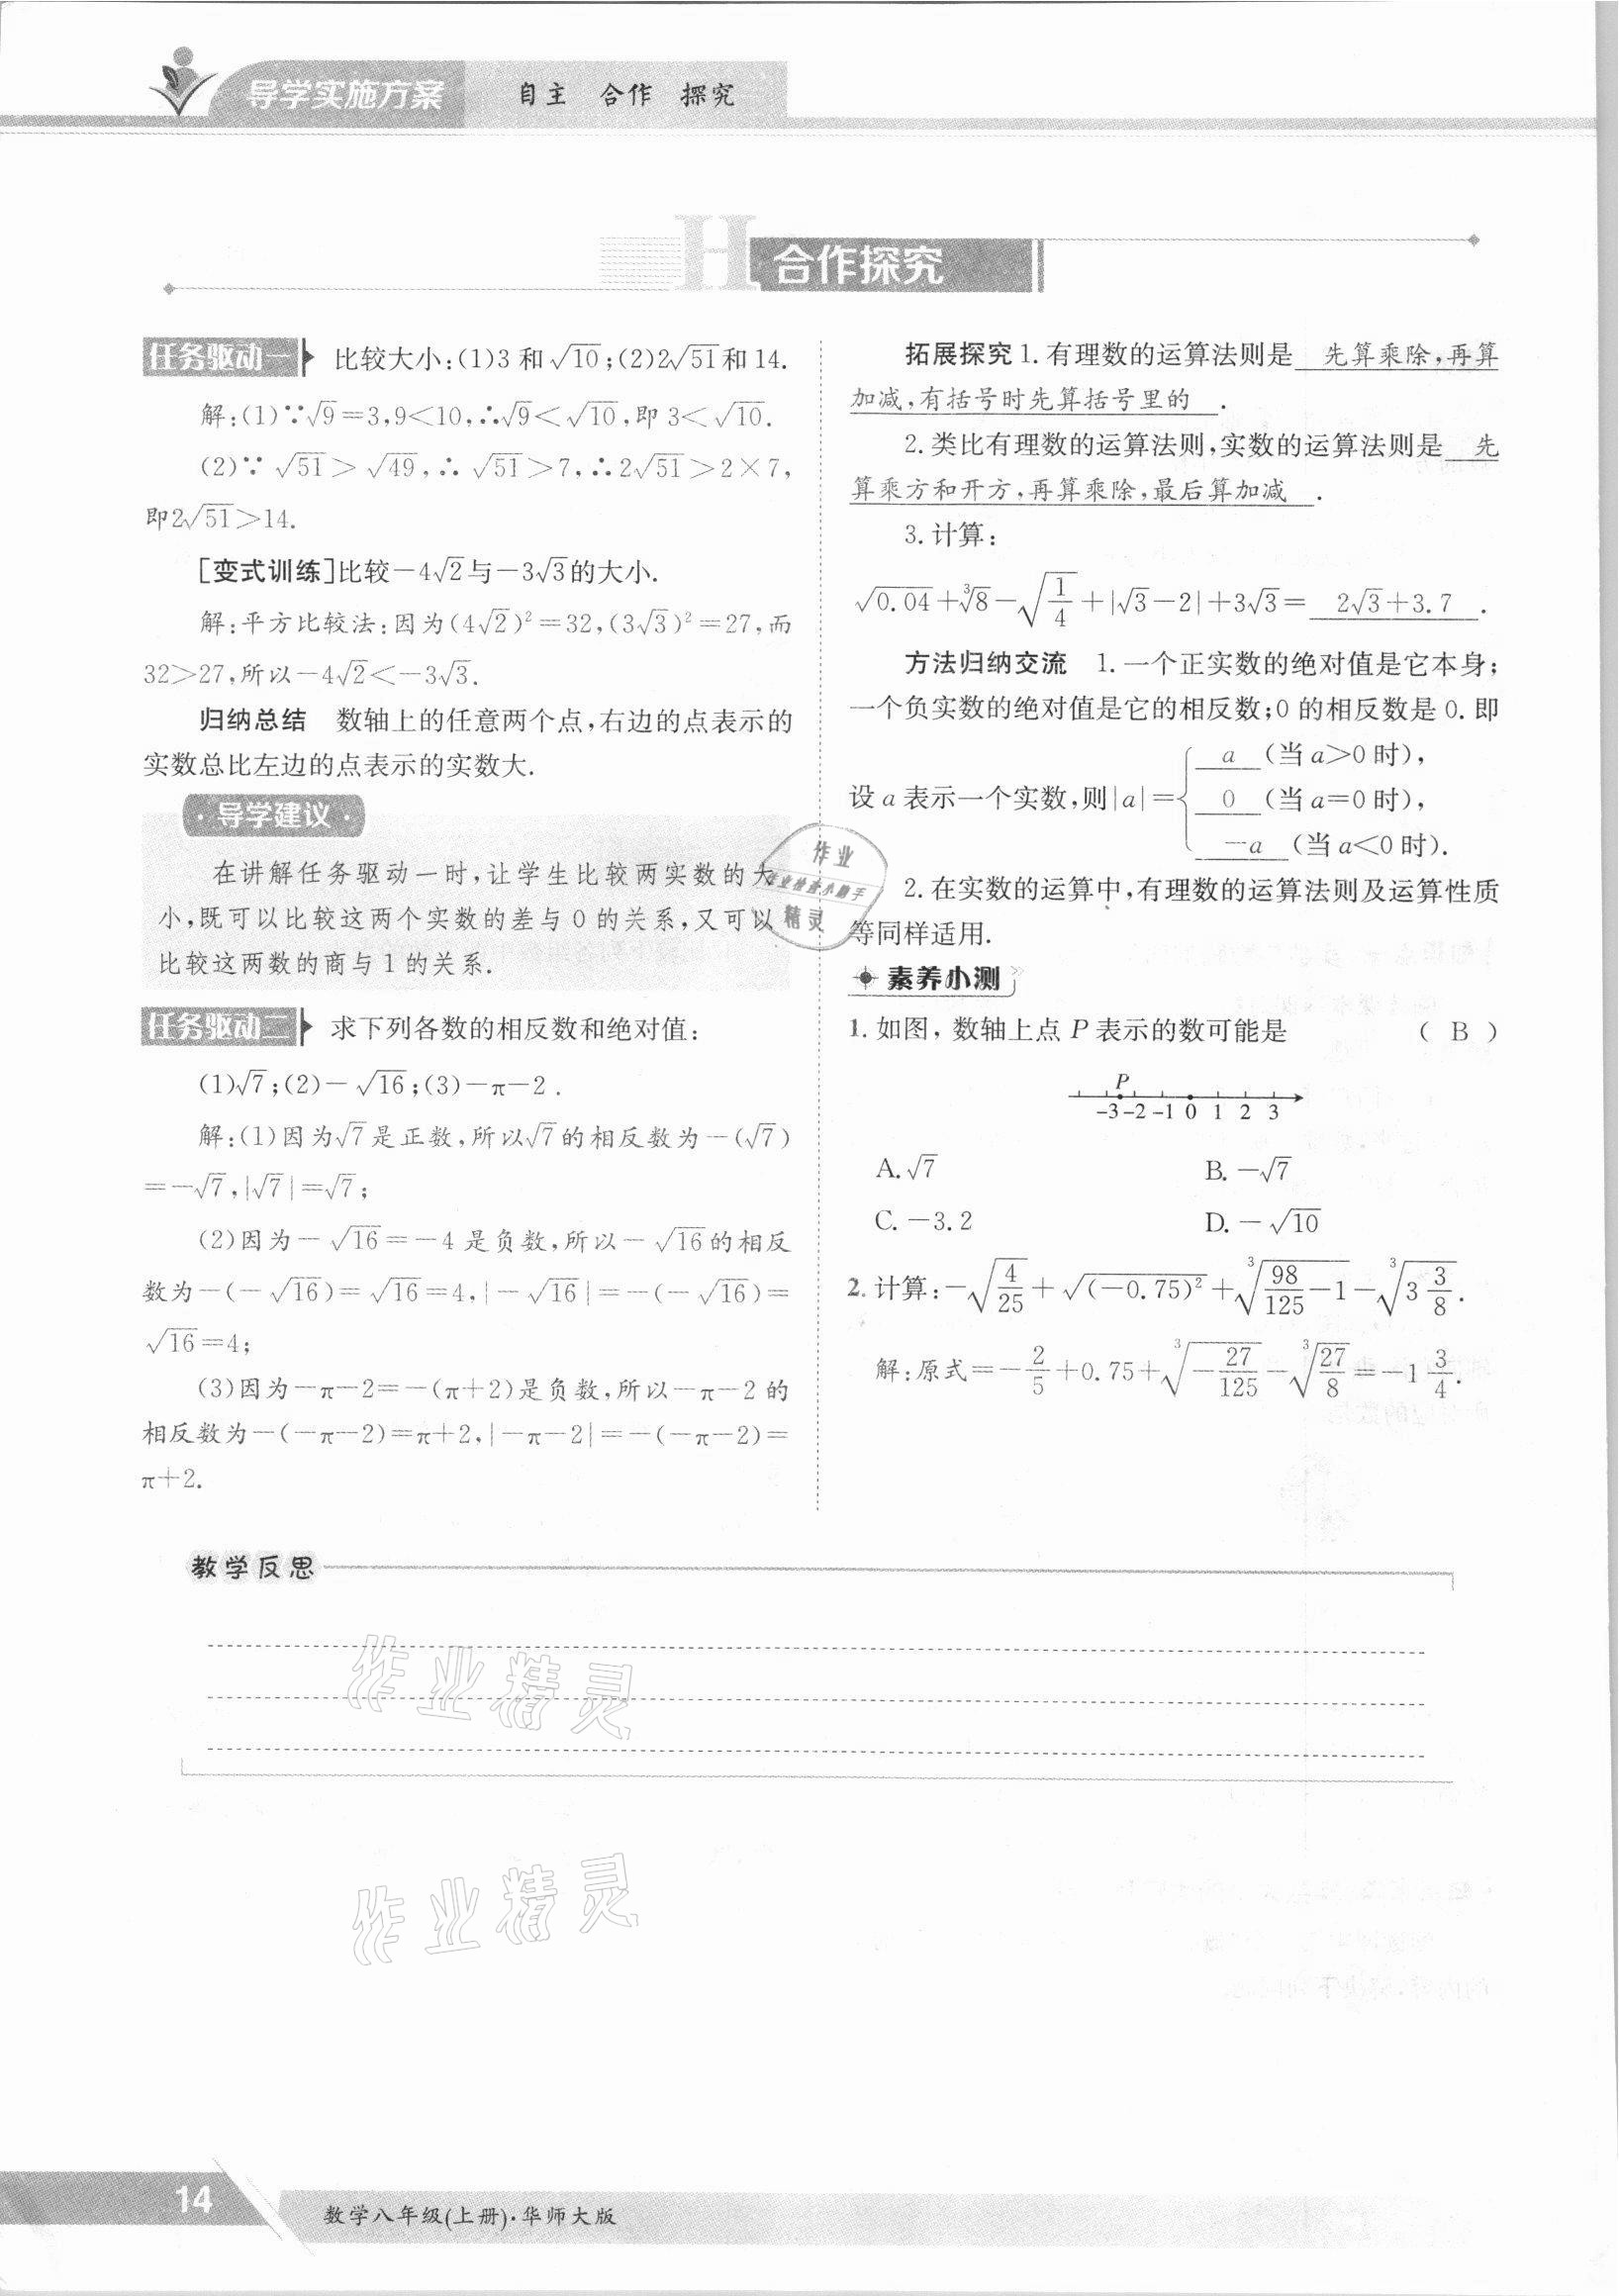 导学实施方案 自主 合作 探究
H 合作探究
任务驱动一 比较大小:(1)3 和√10;(2)2√51和14.
解:(1)∵√9=3,9<10,∴√9<√10,即 3<√10.
(2)∵√51>√49,∴√51>7,∴2√51>2×7,
即2√51>14.
[变式训练]比较-4√2与-3√3的大小.
解:平方比较法:因为(4√2)²=32,(3√3)²=27,而
32>27,所以-4√2<-3√3.
归纳总结 数轴上的任意两个点,右边的点表示的
实数总比左边的点表示的实数大.
·导学建议·
在讲解任务驱动一时,让学生比较两实数的大
小,既可以比较这两个实数的差与0的关系,又可以
比较这两数的商与1的关系.
任务驱动二 求下列各数的相反数和绝对值:
(1)√7;(2)-√16;(3)-π-2.
解:(1)因为√7是正数,所以√7的相反数为-(√7)
=-√7,|√7|=√7;
(2)因为-√16=-4是负数,所以-√16的相反
数为-(-√16)=√16=4,|-√16|=-(-√16)=
√16=4;
(3)因为-π-2=-(π+2)是负数,所以-π-2的
相反数为-(-π-2)=π+2,|-π-2|=-(-π-2)=
π+2.
拓展探究1. 有理数的运算法则是 先算乘除,再算
加减,有括号时先算括号里的 .
2. 类比有理数的运算法则,实数的运算法则是 先
算乘方和开方,再算乘除,最后算加减 .
3. 计算:
√0.04+∛8-√(1/4)+|√3-2|+3√3= 2√3+3.7 .
方法归纳交流 1. 一个正实数的绝对值是它本身;
一个负实数的绝对值是它的相反数;0的相反数是0. 即
a (当a>0时),
设a表示一个实数,则|a|={ 0 (当a=0时),
-a (当a<0时).
2. 在实数的运算中,有理数的运算法则及运算性质
等同样适用.
素养小测
1. 如图,数轴上点P表示的数可能是 ( B )
P
-3 -2 -1 0 1 2 3
A. √7 B. -√7
C. -3.2 D. -√10
2. 计算:-√(4/25)+√(-0.75)²+∛(98/125-1)-∛(3 3/8).
解:原式=-2/5+0.75+∛(-27/125)-∛(27/8)=-1 3/4.
作业
作业检查小助手
精灵
教学反思
作业精灵
作业精灵
14
数学八年级(上册)·华师大版